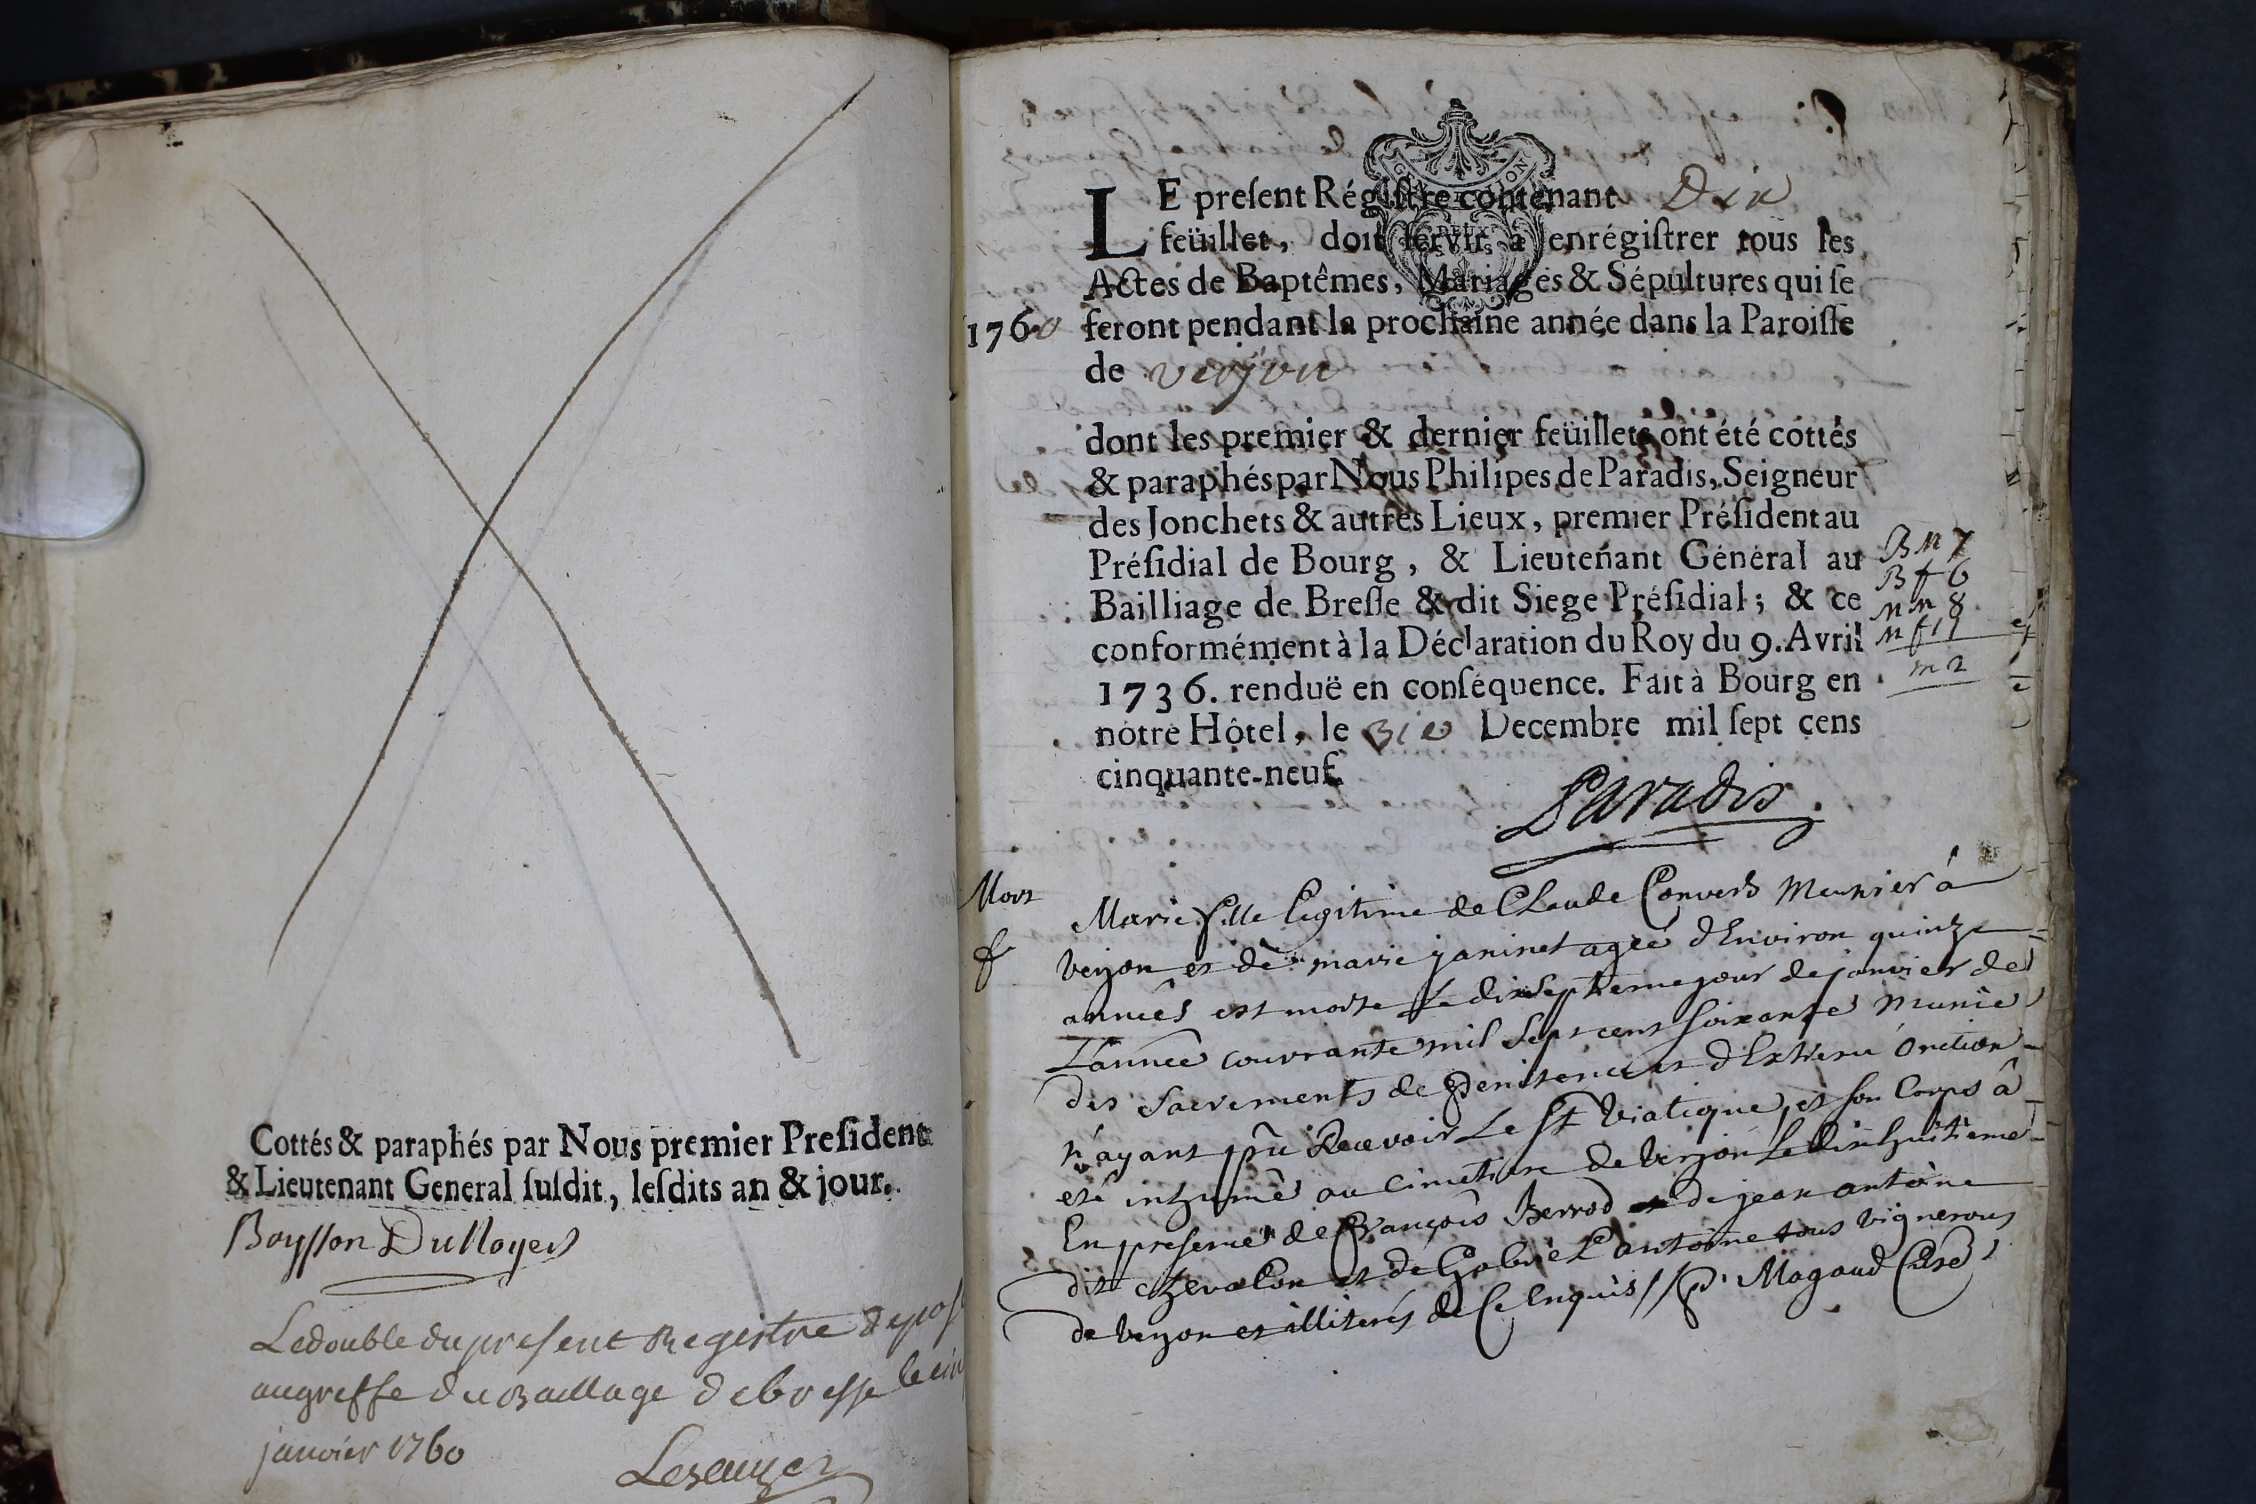 Cottés & paraphés par Nous premier Preſident
& Lieutenant General ſuſdit, leſdits an & jour.
Boysson DuNoyer
Le double du present Registre depos
au greffe du Baillage de bresse le cin
janvier 1760
GENERATION
DEUX
LE preſent Régiſtre contenant Dix
feüillet, doit ſervir à enrégiſtrer tous les
Actes de Baptêmes, Mariages & Sépultures qui ſe
1760 feront pendant la prochaine année dans la Paroiſſe
de verjon
dont les premier & dernier feüillets ont été cottés
& paraphés par Nous Philipes de Paradis, Seigneur
des Jonchets & autres Lieux, premier Préſident au
Préſidial de Bourg, & Lieutenant Général au
Bailliage de Breſſe & dit Siege Préſidial; & ce
conformément à la Déclaration du Roy du 9. Avril
1736. renduë en conſéquence. Fait à Bourg en
nôtre Hôtel, le Decembre mil ſept cens
cinquante-neuf.
Paradis
B M 7
B f 6
M m 8
M f 19
m 2
Mort
f
Marie fille legitime de Claude Convers Meunier à
verjon et de marie janinet agée d'Environ quinze
années est morte Le dixseptieme jour de janvier de
L'année courrante mil sept cent soixante Munie
des sacrements de Penitence et d'Extreme Onction
n'ayant pû Recevoir Le St Viatique, et son Corps à
eté inhumé au Cimetiere de Verjon Le dixhuitieme
En presence de François Berrod et de jean antoine
dit chevalon et de Gabriel antoine tous vignerons
de verjon et illiterés de ce Enquis // P. Magaud Curé